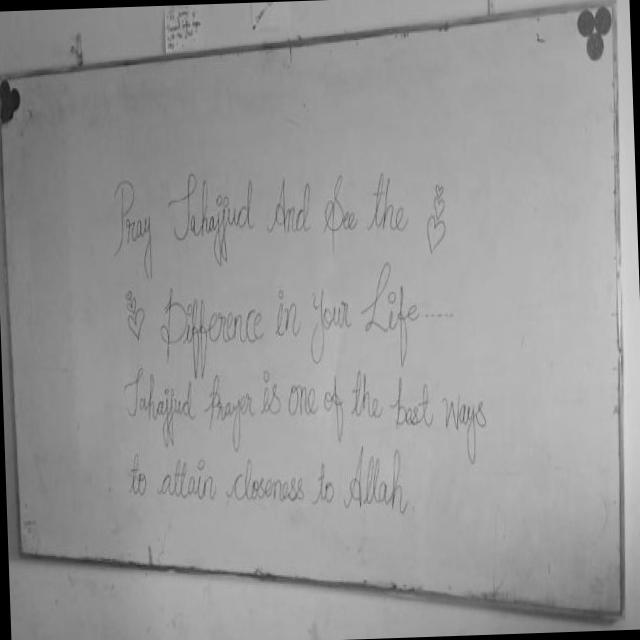 Pray Tahajjud And See the
Difference in Your Life.....
Tahajjud Prayer is one of the best ways
to attain closeness to Allah.